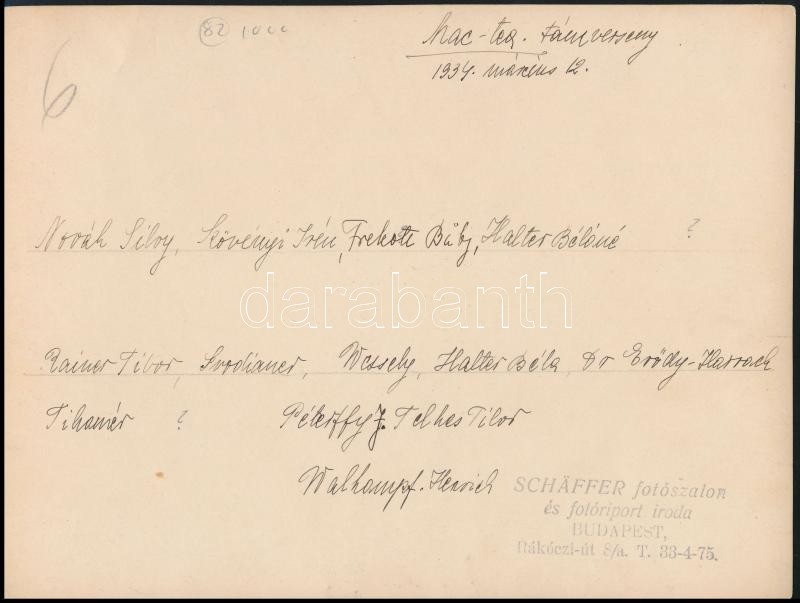 82 1000
Mac-tea. táncverseny
6
1934. március 12.
Novák Silvy, Kövényi Irén, Frekott Búby, Halter Béláné ?
darabanth
Rainer Tibor, Svodianer, Wessely, Halter Béla, Dr Erődy-Harrach
Tihamér ? Péterffy J. Telkes Tibor
Walkampf. Henrich
SCHÄFFER fotószalon
és fotóriport iroda
BUDAPEST,
Rákóczi-út 8/a. T. 33-4-75.